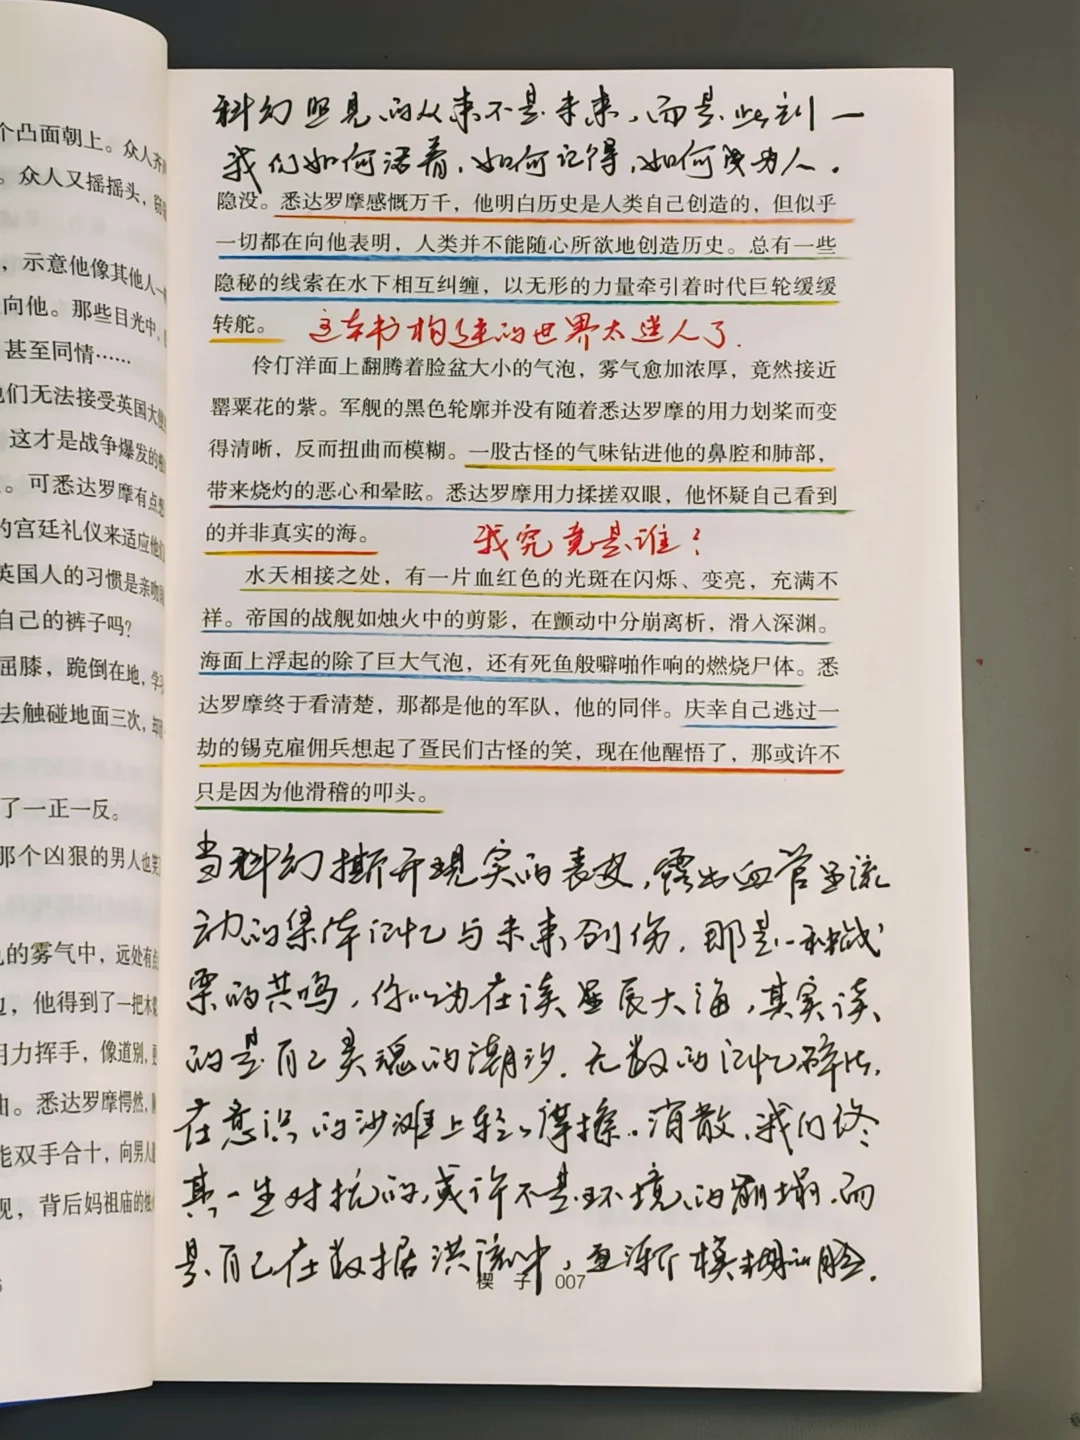 个凸面朝上。众人齐
。众人又摇摇头，
，示意他像其他人一
向他。那些目光中，
甚至同情……
他们无法接受英国大
这才是战争爆发的
。可悉达罗摩有点
的宫廷礼仪来适应他们
英国人的习惯是亲吻
自己的裤子吗？
屈膝，跪倒在地，学
去触碰地面三次，
了一正一反。
那个凶狠的男人也笑
的雾气中，远处有点
边，他得到了一把木
用力挥手，像道别，
由。悉达罗摩愕然，
能双手合十，向男人
现，背后妈祖庙的
科幻照见的从来不是未来，而是此刻—
我们如何活着，如何记得，如何成为人。
隐没。悉达罗摩感慨万千，他明白历史是人类自己创造的，但似乎
一切都在向他表明，人类并不能随心所欲地创造历史。总有一些
隐秘的线索在水下相互纠缠，以无形的力量牵引着时代巨轮缓缓
转舵。 这本书构建的世界太迷人了.
伶仃洋面上翻腾着脸盆大小的气泡，雾气愈加浓厚，竟然接近
罂粟花的紫。军舰的黑色轮廓并没有随着悉达罗摩的用力划桨而变
得清晰，反而扭曲而模糊。一股古怪的气味钻进他的鼻腔和肺部，
带来烧灼的恶心和晕眩。悉达罗摩用力揉搓双眼，他怀疑自己看到
的并非真实的海。 我究竟是谁？
水天相接之处，有一片血红色的光斑在闪烁、变亮，充满不
祥。帝国的战舰如烛火中的剪影，在颤动中分崩离析，滑入深渊。
海面上浮起的除了巨大气泡，还有死鱼般噼啪作响的燃烧尸体。悉
达罗摩终于看清楚，那都是他的军队，他的同伴。庆幸自己逃过一
劫的锡克雇佣兵想起了疍民们古怪的笑，现在他醒悟了，那或许不
只是因为他滑稽的叩头。
当科幻撕开现实的表皮，露出血管里流
动的集体记忆与未来创伤，那是一种战
栗的共鸣，你以为在读星辰大海，其实读
的是自己灵魂的潮汐．无数的记忆碎片，
在意识的沙滩上轻轻摩擦。消散，我们终
其一生对抗的，或许不是环境的崩塌，而
是自己在数据洪流中，逐渐模糊的脸．
楔 子 007